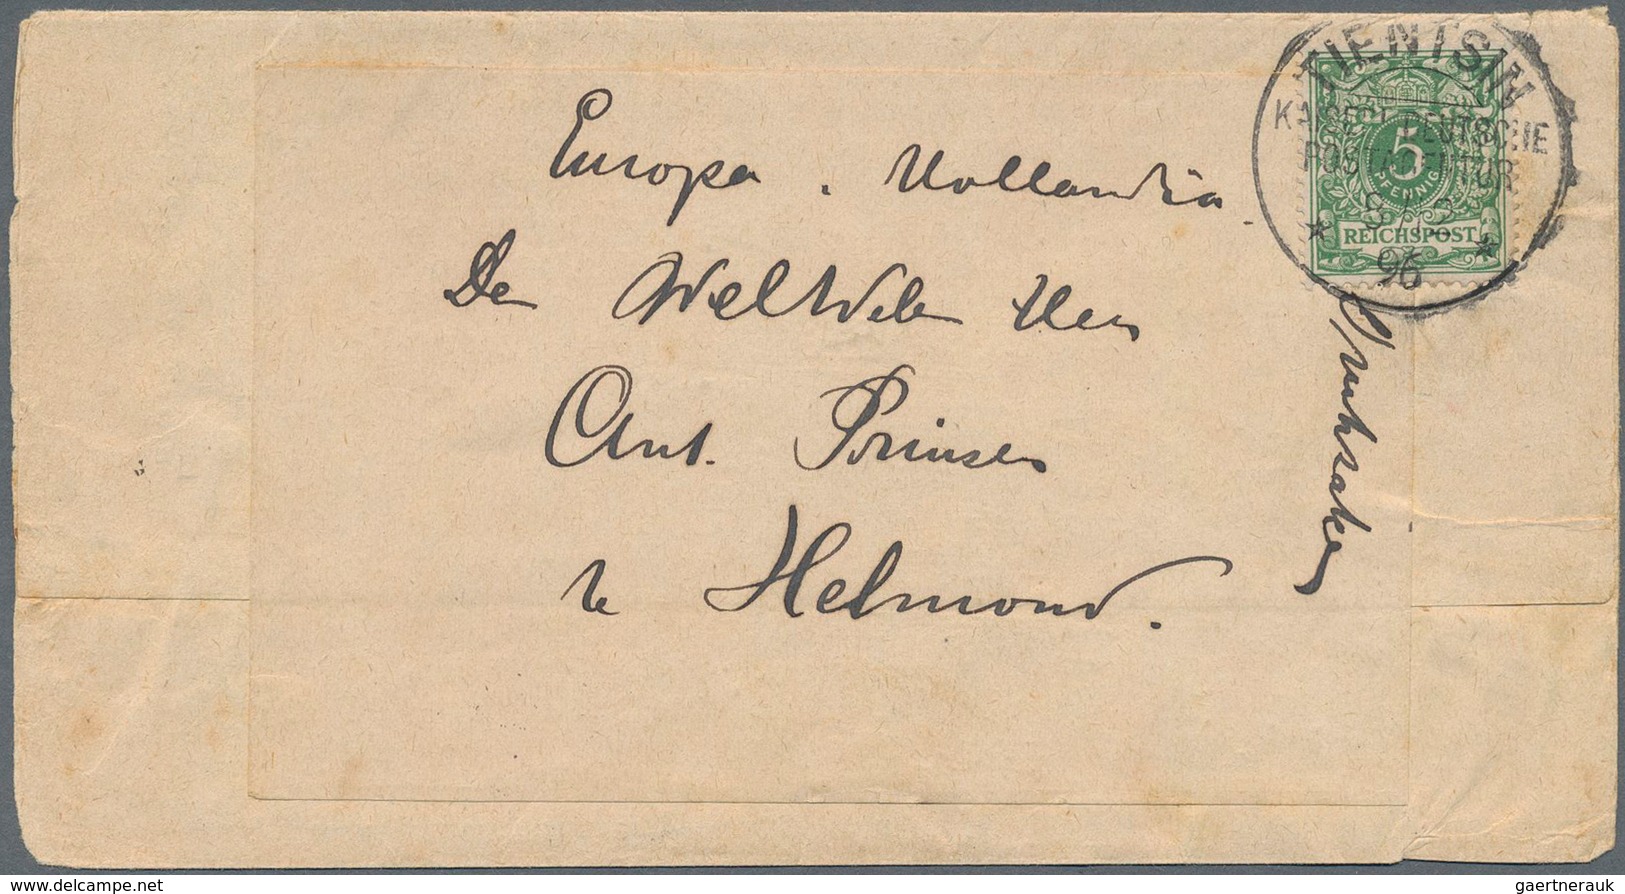 TIENTSIN
KAISERL. DEUTSCHE
POSTAGENTUR
8/3
96
5
PFENNIG
REICHSPOST
Europa. Hollandia
Den WelEdelen Heer
Ant. Prinsen
te Helmond.
Drukzaken
www.delcampe.net
gaertnerauk